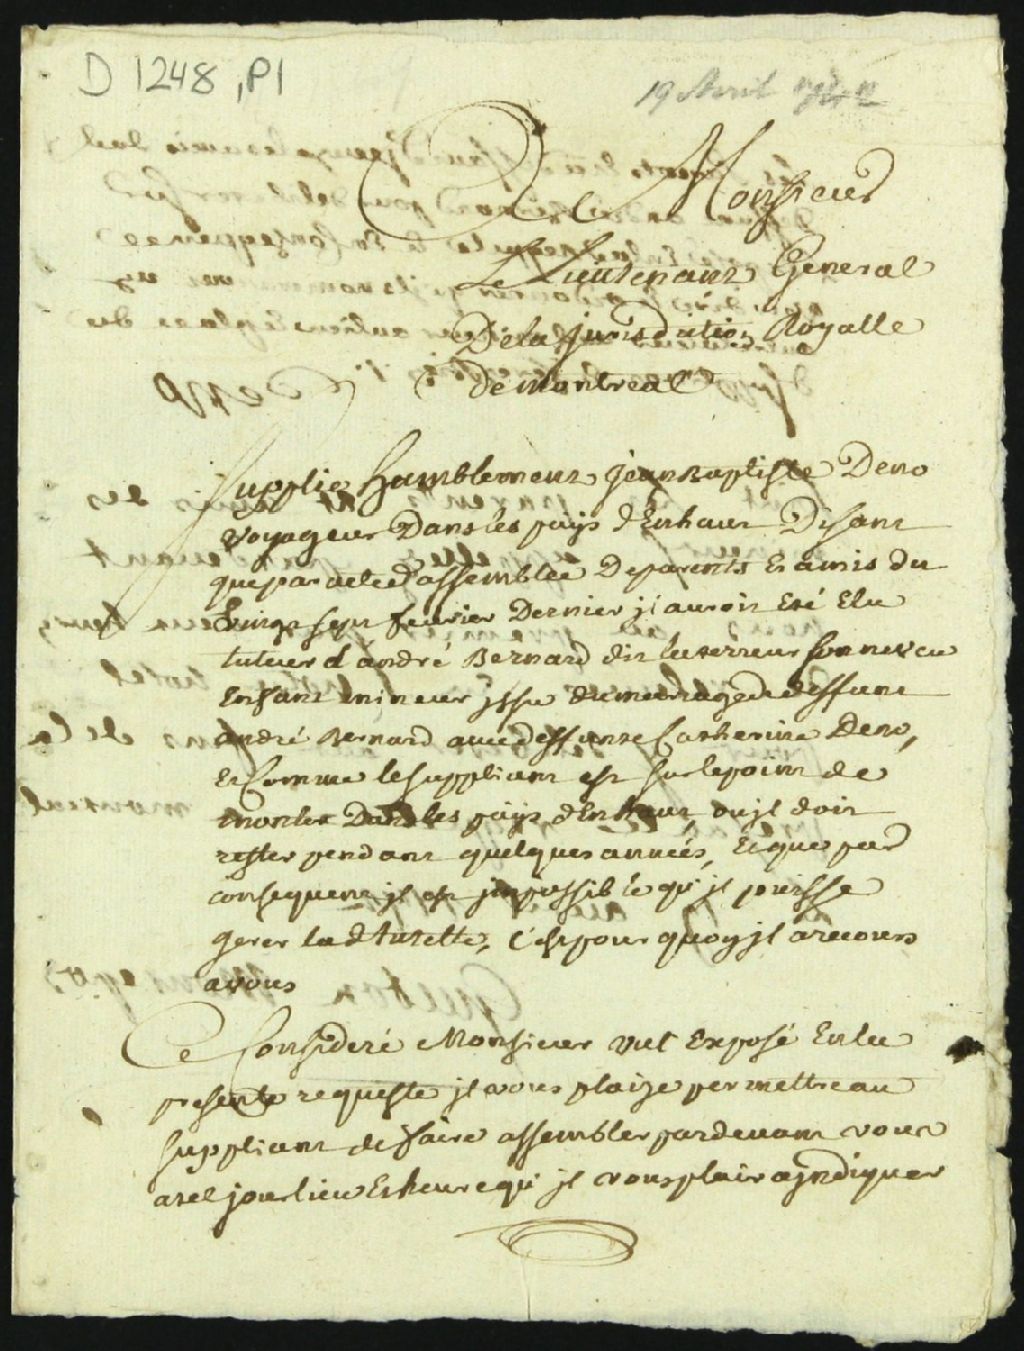 D 1248, P1
19 Avril
A Monsieur
Le Lieutenant General
De la jurisdiction Royalle
De montreal
Supplie humblement jean Baptiste Deno
voyageur Dans les pays d'Enhaut Disant
que par acte d'assemblée De parents Et amis du
Vingt sept fevrier Dernier jl auroit Eté Elu
tuteur d'andré Bernard dit son neveu
Enfant mineur jssu du mariage de deffunt
andré Bernard avec deffunte Catherine Deno,
Et Comme le suppliant est sur le point de
monter Dans les pays d'Enhaut ou jl doit
rester pendant quelques années, Et que par
consequent jl est jmpossible qu'jl puisse
gerer lad. tutelle, C'est pourquoy jl a recours
a vous
Ce Consideré Monsieur vut Exposé En la
presente requeste jl vous plaize permettre au
suppliant de faire assembler pardevant vous
a tel jour lieu Et heure qu'jl vous plaira jndiquer